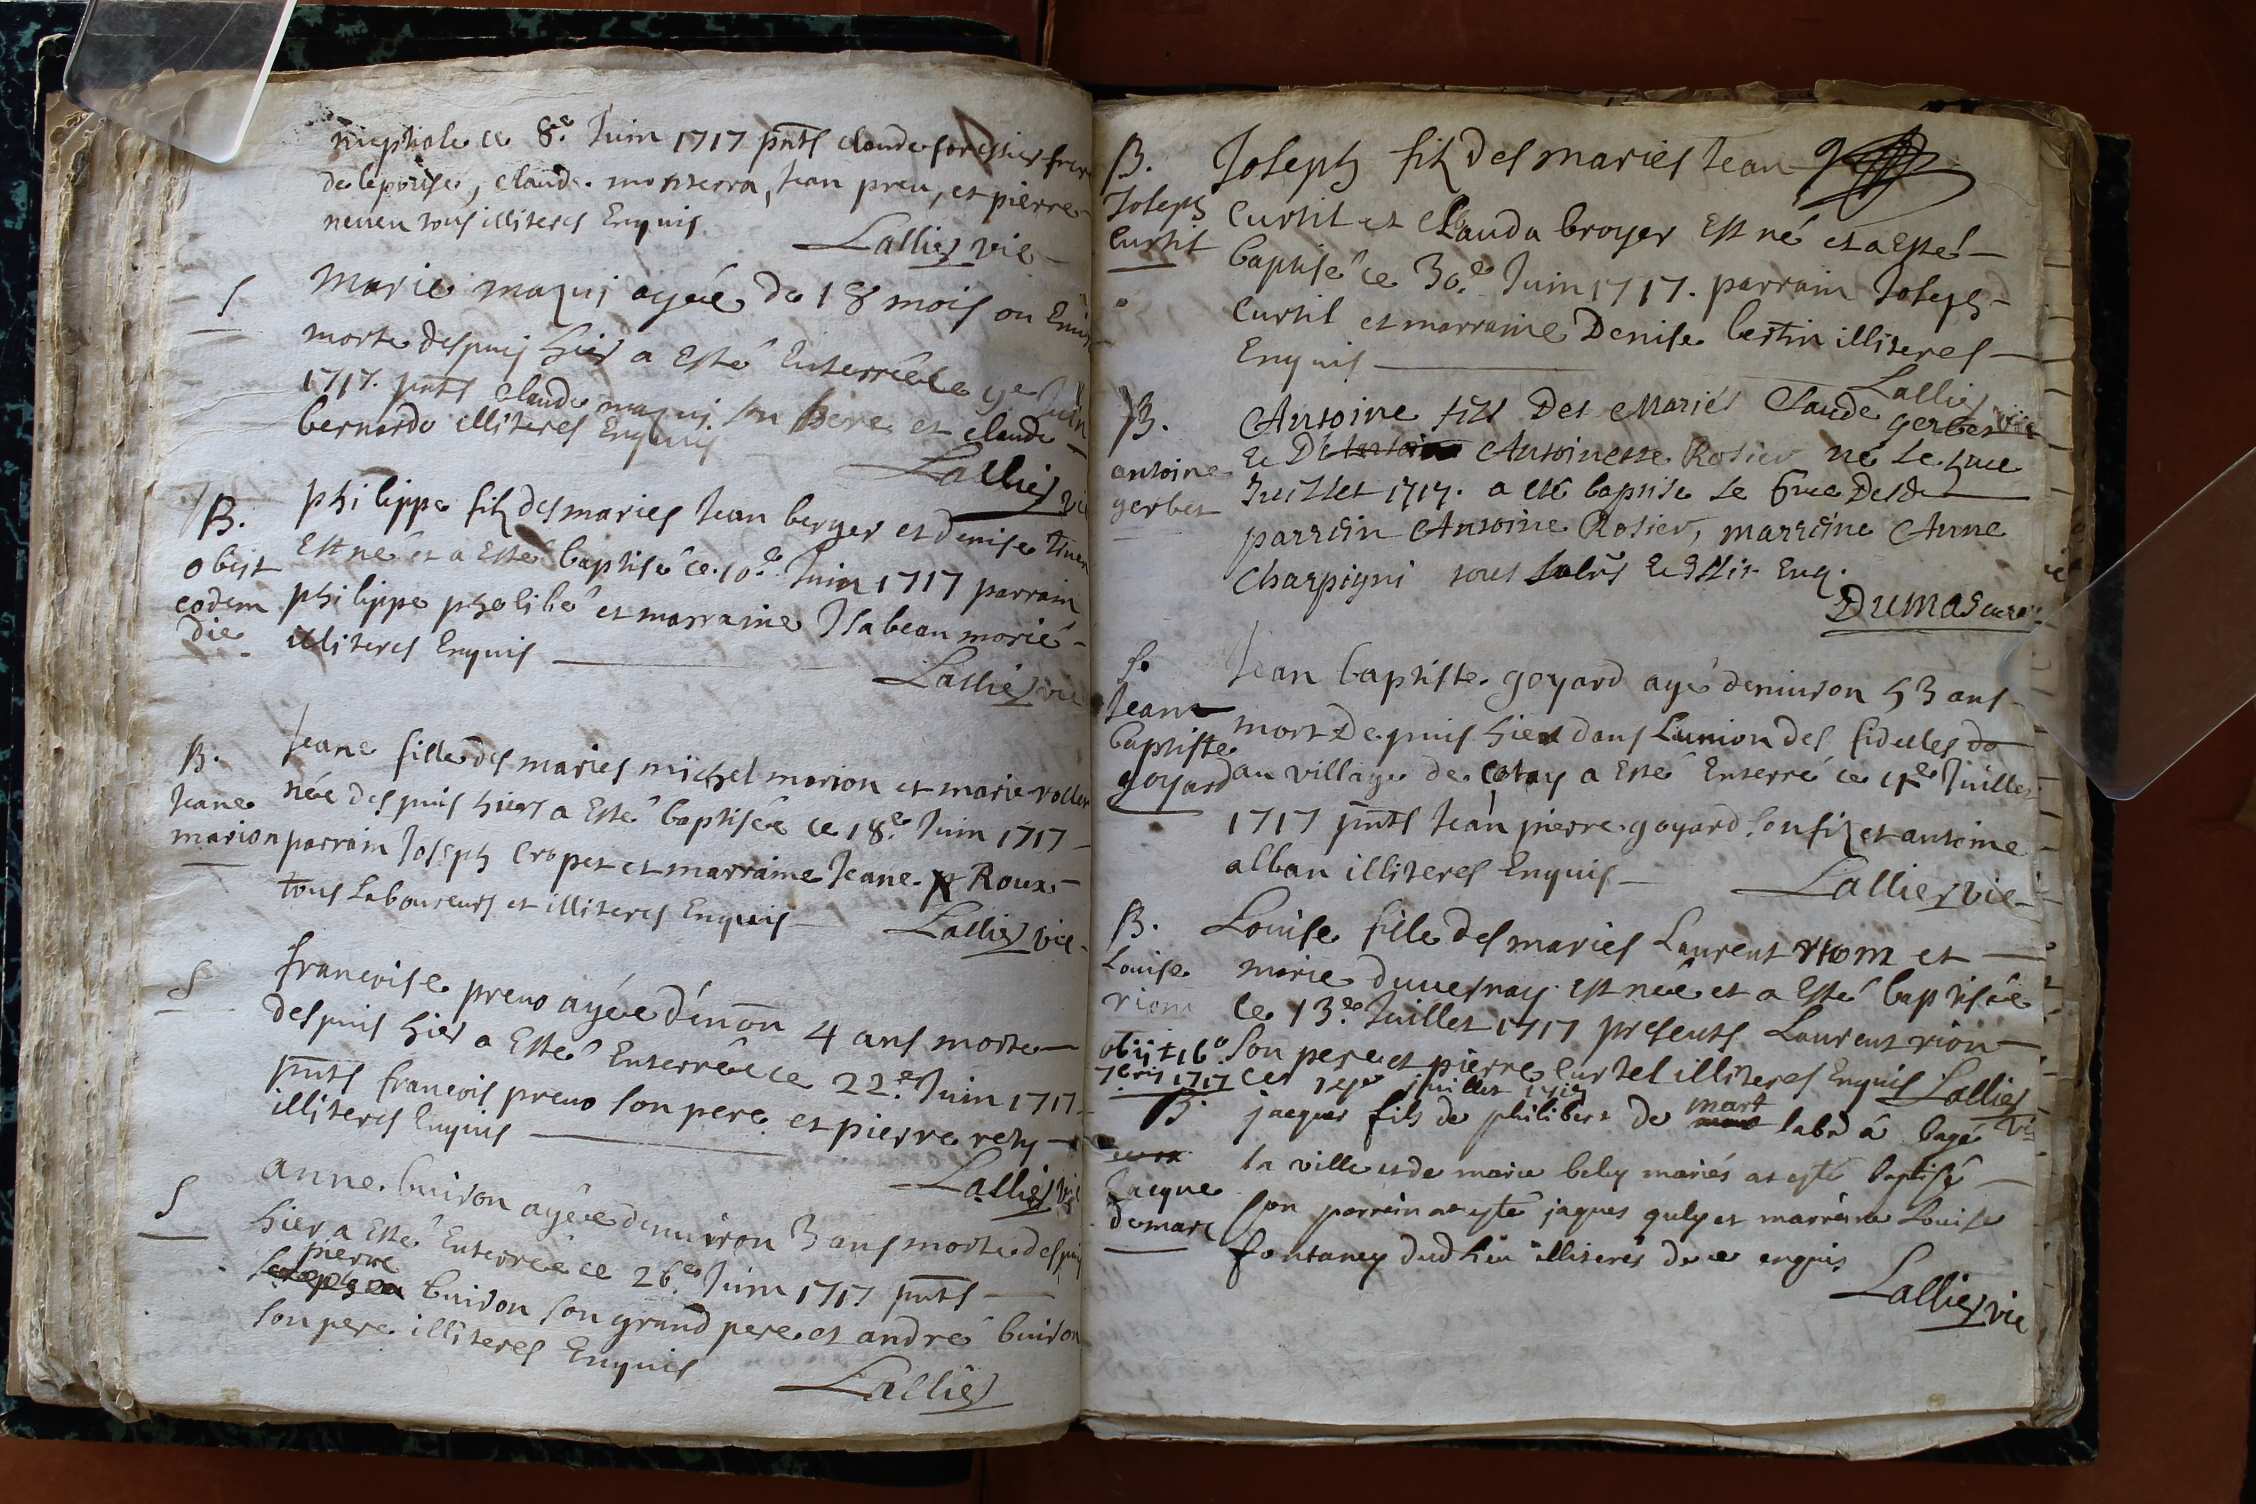 nuptiale ce 8.e Juin 1717 pnts claude forestier frere
de lepouse, claude monterra, Jean preu, et pierre
neveu tous illiteres Enquis.
Lallier vic
S
Marie mazui agée de 18 mois ou Enui
morte despuis hier a Esté Enterrée le 9e Juin
1717. pnts Claude mazui son pere et claude
bernardo illiteres Enquis
Lallier vic
B.
obiit
eodem
die
philippe filz des maries Jean berger et denise
Est né et a Esté baptisé ce 10.e Juin 1717 parrain
philippe phelibé et marraine Isabeau morié
illiteres Enquis
Lallier vic
B.
Jeane
marion
Jeane fille des maries michel marion et marie
née despuis hier a Esté baptisée ce 18.e Juin 1717
parrain Joseph cropet et marraine Jeane Roux
tous Laboureurs et illiteres Enquis
Lallier vic
S
francoise preuo agée d'enon 4 ans morte
despuis hier a Esté Enterrée ce 22.e Juin 1717
pnts francois preuo son pere et pierre rety
illiteres Enquis
Lallier vic
S
anne buiron agée denuiron 3 ans morte despuis
hier a Esté Enterrée ce 26.e Juin 1717 pnts
pierre
buiron son grand pere et andré buiron
son pere illiteres Enquis
Lallier
B.
Joseph
Curtil
Joseph filz des maries Jean
Curtil et Clauda broyer Est né et a Esté
baptisé ce 30.e Juin 1717. parrain Joseph
Curtil et marraine Denise bertin illiteres
Enquis
Lallier vic
B.
antoine
gerbet
Antoine fils Des Mariés Claude gerbet
Et De Antoinette Rosier né le 5me
Juillet 1717. a esté baptisé le 6me Desd
parrein Antoine Rosier, marreine Anne
Charpigni tous Et Illit Enq.
Dumas curé
S.
Jean
baptiste
goyard
Jean baptiste goyard agé denuiron 53 ans
mort Depuis hier dans Lunion des fidelles
au village de cotay a Esté Enterré ce Juillet
1717 pnts Jean pierre goyard son filz et antoine
alban illiteres Enquis
Lallier vic
B.
Louise
riom
obiit 16.o
7bris 1717
Louise fille des maries Laurent riom et
marie duuernay est née et a Esté baptisée
ce 13.e Juillet 1717 presents Laurent riom
son pere et pierre curtel illiteres Enquis Lallier vic
B.
Jacque
demarc
ce juillet 1717
jacques fils de philibert de mart labr à bagé
la ville et de marie bely mariés at esté baptisé
son parrein at esté jaques guly et marreine Louise
fontaney dud lieu illiterés de ce enquis
Lallier vic